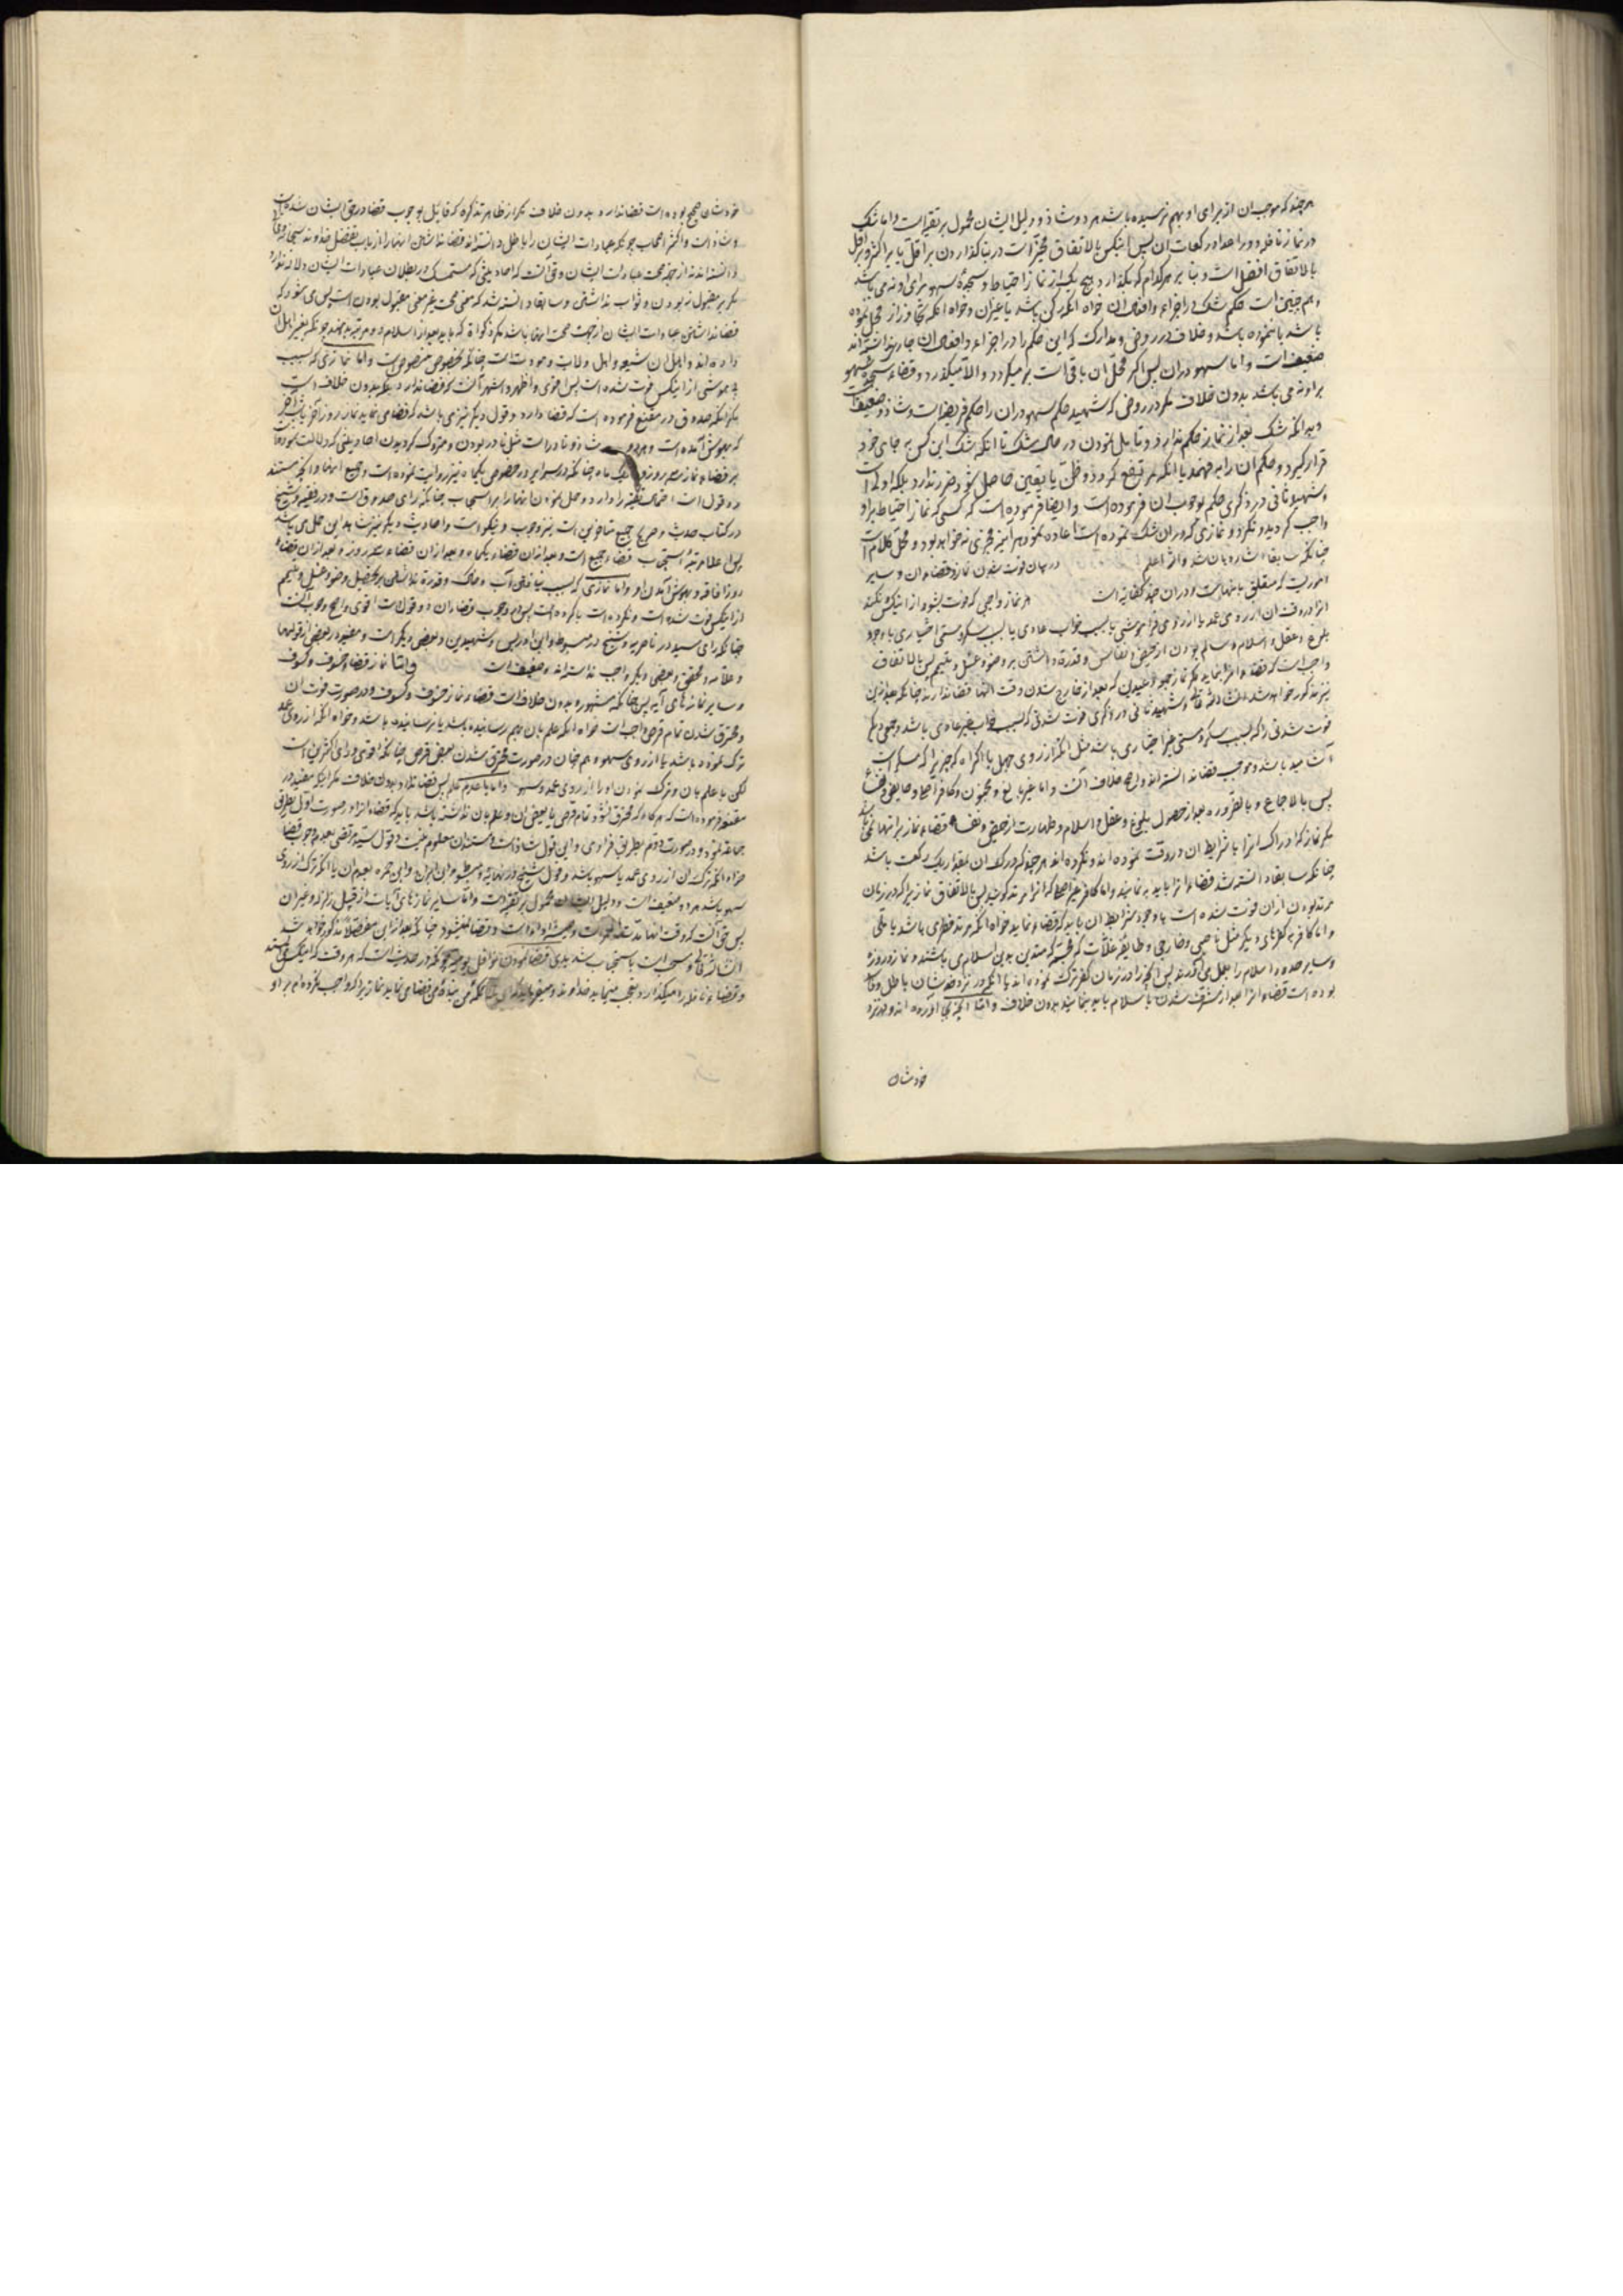 هر چند که موجب ان از برای او بهم نرسیده باشد هر دو شاذ و دلیل ایشان محمول بر تقیه است و اما شک
در نماز نافله و در اعداد رکعات ان پس اینکس بالاتفاق مخیر است در بنا کذاردن بر اقل یا بر اکثر و بر اقل
بالاتفاق افضل است و بنا بر هر کدام که بکذارد هیچ یک از نماز احتیاط و سجدۀ سهو برای او نه می باشد
و هم چنین است حکم شک در اجزاء و افعال ان خواه انکه رکن باشد یا غیر ان و خواه انکه تجاوز از محل نموده
باشد یا ننموده باشد و خلاف در روض و مدارک که این حکم را در اجزاء و افعال ان جاری ندانسته اند
ضعیف است و اما سهو در ان پس اکر محل ان باقی است بر میکردد و الا میکذرد و قضاء و سجدۀ سهو
بر او نه می باشد بدون خلاف مکر در روض که شهید حکم سهو در ان را حکم فریضه است و شاذ و ضعیف است
و بدانکه شک بعد از نماز حکم ندارد و تأمل نمودن در حال شک تا انکه شک این کس به جای خود
قرار کیرد و حکم ان را به فهمد یا انکه مرتفع کردد و ظن یا یقین حاصل شود ضرر ندارد بلکه اولی است
و شهید ثانی در ذکری حکم بوجوب ان فرموده است و ایضا فرموده است که کسی که نماز احتیاط بر او
واجب کردید و نکرد و نمازی که در ان شک نموده است اعاده نمود هر آینه مجزی نه خواهد بود و محل کلام است
چنانکه سابقا اشاره بان شد والله اعلم در بیان فوت شدن نماز و قضاء ان و سایر
امور یست که متعلق بانهاست و در ان چند کفتار است هر نماز واجبی که فوت بشود از اینکس نکند
انرا در وقت ان از روی عمد یا از روی فراموشی یا بسبب خواب عادی یا بسبب سکر و مستی اختیاری با وجود
بلوغ و عقل و اسلام و سالم بودن از حیض و نفاس و قدرة داشتن بر وضو و غسل و تیمم پس بالاتفاق
واجب است که قضاء انرا بنماید مکر نماز جمعه و عیدین که بعد از خارج شدن وقت انها قضا ندارند چنانکه بعد از این
نیز مذکور خواهد شد انشاءالله تعالی و شهید ثانی در ذکری فوت شدنی که بسبب خواب غیر عادی باشد و جمعی دیکر
فوت شدنی را که بسبب سکر و مستی غیر اختیاری باشد مثل انکه از روی جهل یا اکراه که چیزیرا که مسکر است
پس بالاجماع و بالضروره بعد از حصول بلوغ و عقل و اسلام و طهارت از حیض و نفاس قضاء نماز بر انها نمی باشد
مکر نماز که ادراک انرا با شرایط ان در وقت نموده اند و نکرده اند هر چند که درک ان بمقدار یک رکعت باشد
چنانکه سابقا دانسته شد قضاء انرا باید به نمایند و اما کافر غیر اصلی که انرا مرتد کویند پس بالاتفاق نماز یرا که در زمان
مرتد بودن از ان فوت شده است با وجود شرایط ان باید که قضاء نماید خواه انکه مرتد فطری باشد یا ملی
و اما کافر به کفرهای دیکر مثل ناصبی و خارجی و طایفۀ غلات که مجسمه که متدین بدین اسلام می باشند و نماز و روزه
بوده است قضاء انرا بعد از مشرف شدن باسلام باید بنمایند بدون خلاف و اما انچه بجا آورده اند و در نزد
خودشان
خودشان صحیح بوده است قضا ندارد بدون خلاف مکر از ظاهر تذکره که قائل بوجوب قضا در حق ایشان شده است
و شاذ است و اکثر اصحاب چونکه عبادات ایشان را باطل دانسته اند قضا نداشتن انها را از باب تفضل خداوند سبحانه و تعالی
دانسته اند
مکر بر مقبول نه بودن و ثواب نداشتن و سابقا دانسته شد که معنی صحت غیر معنی مقبول بودن است پس می شود که
قضا نداشتن عبادات ایشان از جهت صحت انها باشد مکر زکوة که باید بعد از اسلام دو مرتبه بدهند چونکه بغیر اهل ان
داده اند و اهل ان شیعه و اهل ولایت و مودت است چنانکه بخصوص منصوص است و اما نمازی که بسبب
بیهوشی از اینکس فوت شده است پس اقوی و اظهر و اشهر آنست که قضا ندارد بلکه بدون خلاف است
مکر انکه صدوق در مقنع فرموده است که قضا دارد و قول دیکر نیز می باشد که قضا می نماید نماز روز آخر یا شب آخر
که بهوش آمده است و هر دو شاذ و نادر است
بر قضاء نماز سه روز و یک ماه چنانکه در سرایر در خصوص یکماه نیز روایت نموده است و جمیع انها و انچه مستند
دو قول است احتمال تقیه را دارد و حمل نمودن انها را بر استحباب چنانکه رای صدوق است در فقیه و شیخ
در کتاب حدیث و صریح جمیع متاخرین است نیز وجوب و نیکو است و احادیث دیکر نیز شاهد این حمل می باشد
پس اعلا مرتبۀ استحباب قضاء جمیع است و بعد از ان قضاء یکماه و بعد از ان قضاء سه روز و بعد از ان قضاء
روز افاقه و بهوش آمدن او و اما نمازی که بسبب نیافتن آب و خاک و قدرة نداشتن بر تحصیل وضو و غسل و تیمم
از اینکس فوت شده است و نکرده است یا کرده است پس در وجوب قضاء ان دو قول است اقوی و اصح وجوب آنست
چنانکه رای سید در ناصریه و شیخ در مبسوط و ابن ادریس و شهیدین و بعضی دیکر است و مفید در بعضی از قولها
و علامه و محقق و بعضی دیکر واجب ندانسته اند و ضعیف است و اما نماز قضاء خسوف و کسوف
و سایر نمازهای آیه پس چنانکه مشهور و بدون خلاف است قضاء نماز خسوف و کسوف در صورت فوت ان
و محترق شدن تمام قرص واجب است خواه انکه علم بان بهم رسانیده باشد یا نرسانیده باشد و خواه انکه از روی عمد
ترک نموده باشد یا از روی سهو و هم چنان در صورت محترق شدن بعض قرص چنانکه اقوی و رای اکثر این است
لکن با علم بان و ترک نمودن او را از روی عمد و سهو و اما با عدم علم پس قضا ندارد بدون خلاف مکر اینکه مفید در
مقنعه فرموده است که هرکاه که محترق شود تمام قرص یا بعض ان و علم بان نداشته باشد باید که قضاء انرا در صورت اول بطریق
جماعة نمود و در صورت دویم بطریق فرادی و این قول شاذ است و مستند ان معلوم نیست و قول سید مرتضی بعدم وجوب قضا
خواه انکه ترک ان از روی عمد یا سهو باشد و قول شیخ در نهایه و مبسوط و ابن براج و ابن حمزه بعدم ان با انکه ترک از روی
سهو باشد هر دو ضعیف است و دلیل ایشان محمول بر تقیه است و اما سایر نمازهای آیات از قبیل زلزله و غیر ان
انشاءالله تعالی و مستحب است باستحباب شدیدی قضا نمودن نوافل یومیه چونکه در حدیث است که هر وقت که اینکس